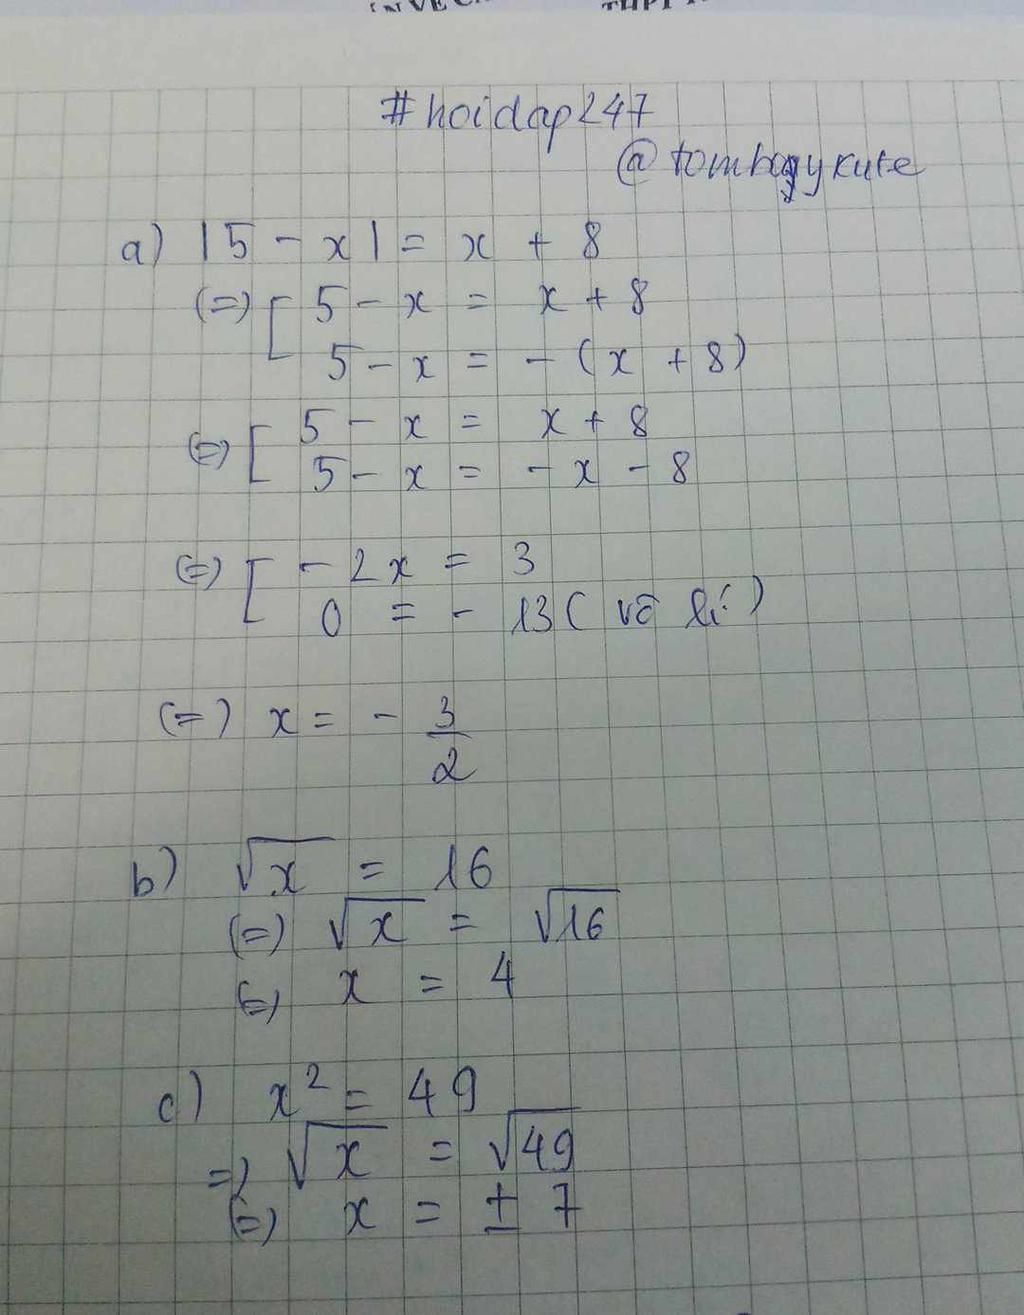 #hoidap247
@tomboyykute
a) |5 - x| = x + 8
(=) [ 5 - x = x + 8
5 - x = - (x + 8)
(=) [ 5 - x = x + 8
5 - x = - x - 8
(=) [ - 2x = 3
0 = - 13 ( vô lí )
(=) x = - 3/2
b) √x = 16
(=) √x = √16
(=) x = 4
c) x² = 49
=) √x = √49
(=) x = ± 7